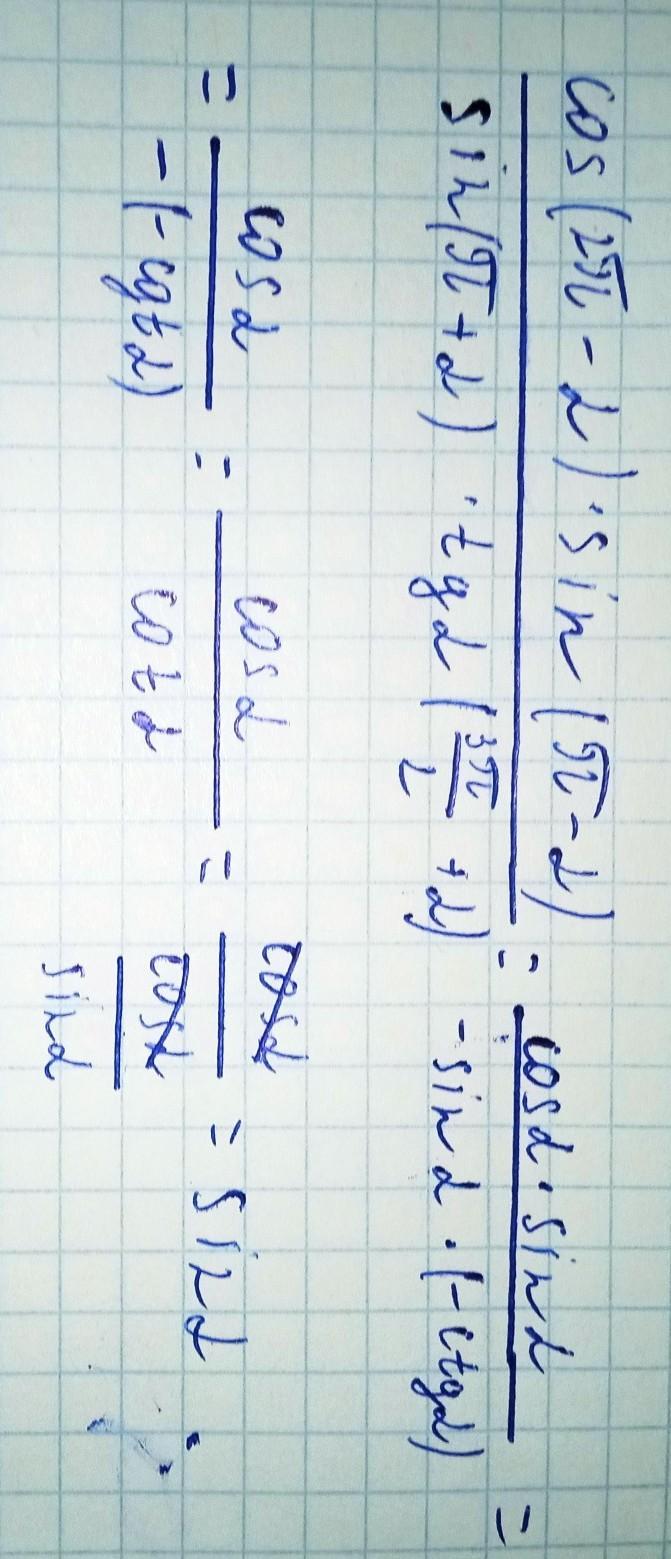 cos(2π - α) · sin(π - α) / sin(π + α) · tgα(3π/2 + α) = cosα · sinα / -sinα · (-ctgα) =
= cosα / -(-cgtα) = cosα / cotα = cosα / cosα / sinα = sinα